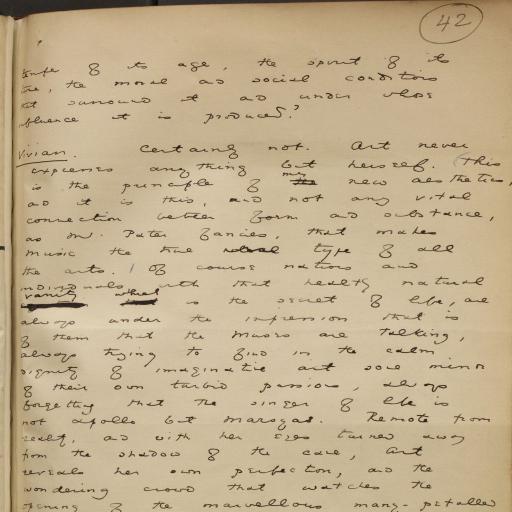 42
temper of its age, the spirit of its
time, the moral and social conditions
that surround it and under whose
influence it is produced?
Vivian. Certainly not. Art never
expresses anything but herself. (This
is the principle of my new aesthetics,
and it is this, and not any vital
connection between form and substance,
as Mr. Pater fancies, that makes
music the true type of all
the arts.) Of course nations and
individuals, with that healthy natural
vanity which is the secret of life, are
always under the impression that it is
of them that the Muses are talking,
always trying to find in the calm
dignity of imaginative art some mirror
of their own turbid passions, always
forgetting that the singer of life is
not Apollo but Marsyas. Remote from
reality, and with her eyes turned away
from the shadow of the cave, Art
reveals her own perfection, and the
wondering crowd that watches the
opening of the marvellous many-petalled